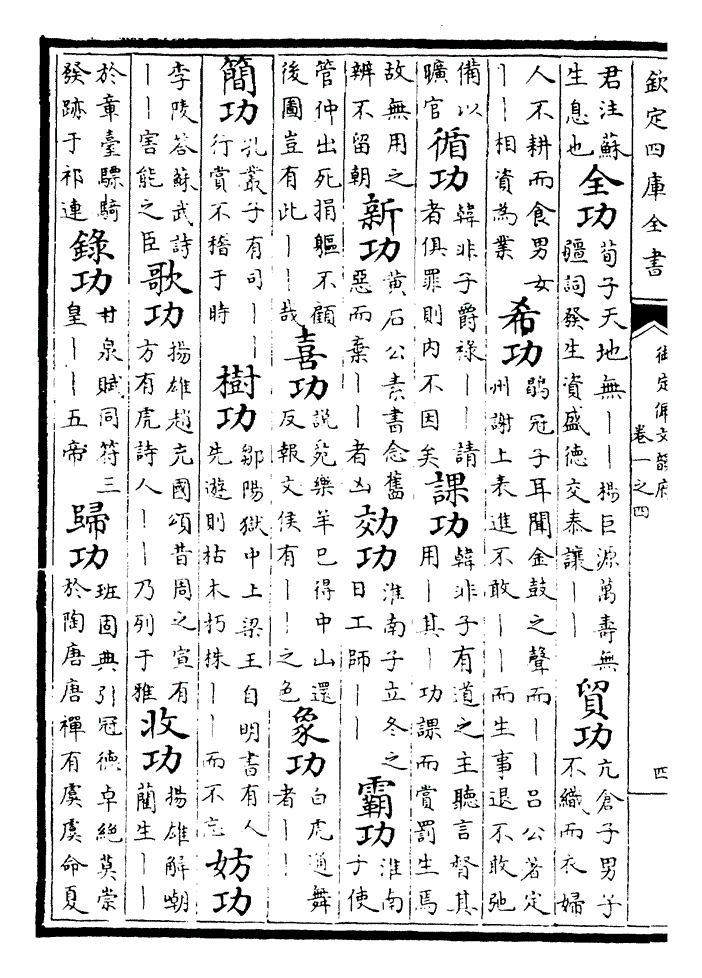 欽定四庫全書
御定佩文韻府
卷一之四
四
君注蘇生息也 全功 荀子天地無丨丨楊巨源萬壽無疆詞發生資盛德交泰讓丨丨 貿功 亢倉子男子不織而衣婦
人不耕而食男女丨丨相資為業 希功 鶡冠子耳聞金鼓之聲而丨丨呂公著定州謝上表進不敢丨丨而生事退不敢弛
備以曠官 循功 韓非子爵祿丨丨請者俱罪則內不因矣 課功 韓非子有道之主聽言督其用丨其丨功課而賞罰生焉
故無用之辨不留朝 新功 黃石公素書念舊惡而棄丨丨者凶 効功 淮南子立冬之日工師丨丨 霸功 淮南子使
管仲出死捐軀不顧後圖豈有此丨丨哉 喜功 說苑樂羊已得中山還反報文侯有丨丨之色 象功 白虎通舞者丨丨
簡功 孔叢子有司丨丨行賞不稽于時 樹功 鄒陽獄中上梁王自明書有人先遊則枯木朽株丨丨而不忘 妨功
李陵荅蘇武詩丨丨害能之臣 歌功 揚雄趙充國頌昔周之宣有方有虎詩人丨丨乃列于雅 收功 揚雄解嘲藺生丨丨
於章臺驃騎發跡于祁連 錄功 甘泉賦同符三皇丨丨五帝 歸功 班固典引冠德卓絶莫崇於陶唐唐禪有虞虞命夏